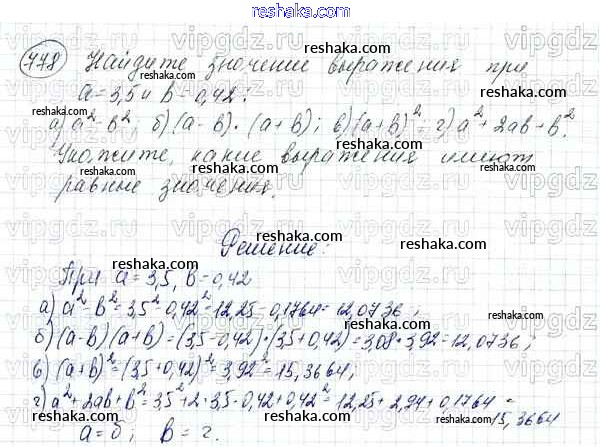 reshaka.com
778 Найдите значение выражения при
a = 3,5 и b = 0,42:
а) a² - b² б) (a - b) · (a + b); в) (a + b)² г) a² + 2ab + b².
Укажите, какие выражения имеют
равные значения.
Решение:
При a = 3,5, b = 0,42
а) a² - b² = 3,5² - 0,42² = 12,25 - 0,1764 = 12,0736;
б) (a - b)(a + b) = (3,5 - 0,42)·(3,5 + 0,42) = 3,08·3,92 = 12,0736;
в) (a + b)² = (3,5 + 0,42)² = 3,92² = 15,3664;
г) a² + 2ab + b² = 3,5² + 2·3,5·0,42 + 0,42² = 12,25 + 2,94 + 0,1764 =
15,3664
а = б; в = г.